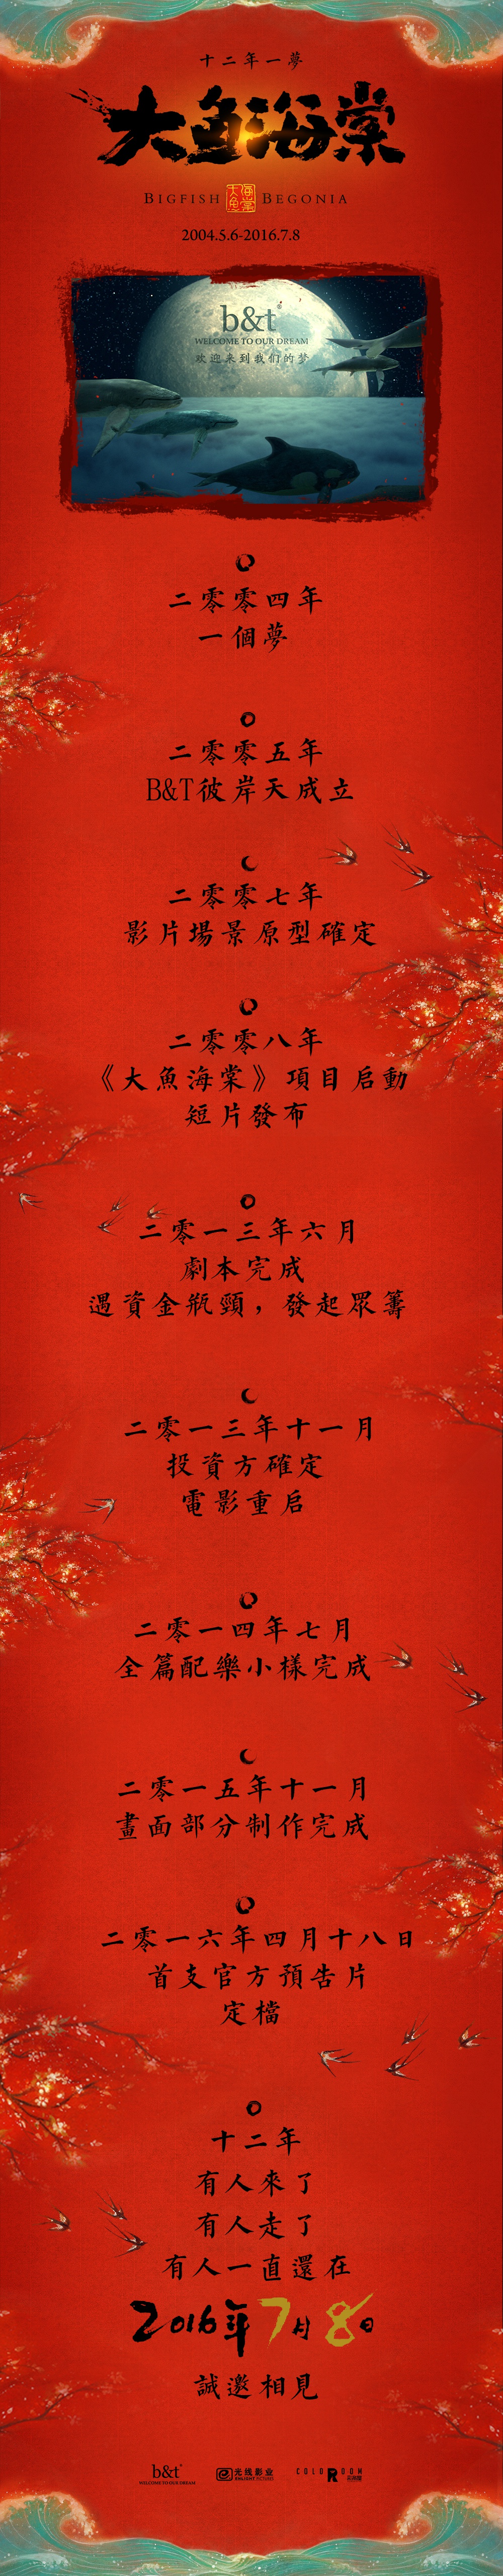 十二年一夢
大鱼海棠
BIGFISH 大鱼海棠 BEGONIA
2004.5.6-2016.7.8
b&t
WELCOME TO OUR DREAM
欢迎来到我们的梦
二零零四年
一個夢
二零零五年
B&T彼岸天成立
二零零七年
影片場景原型確定
二零零八年
《大魚海棠》項目启動
短片發布
二零一三年六月
劇本完成
遇資金瓶頸，發起眾籌
二零一三年十一月
投資方確定
電影重启
二零一四年七月
全篇配樂小樣完成
二零一五年十一月
畫面部分制作完成
二零一六年四月十八日
首支官方預告片
定檔
十二年
有人來了
有人走了
有人一直還在
2016年7月8日
誠邀相見
b&t
WELCOME TO OUR DREAM
光线影业
ENLIGHT PICTURES
COLOROOM